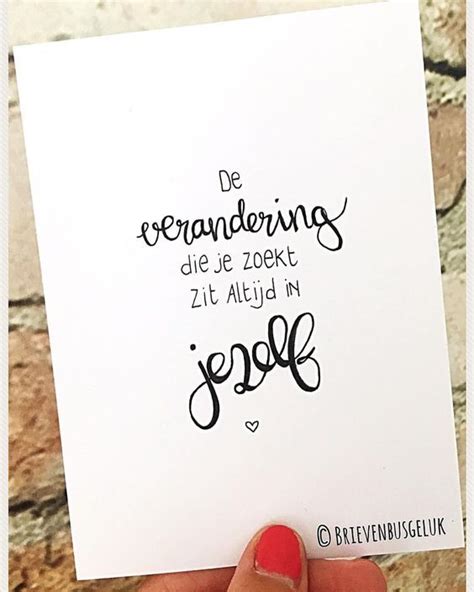 De
verandering
die je zoekt
zit altijd in
jezelf
♡
© BRIEVENBUSGELUK